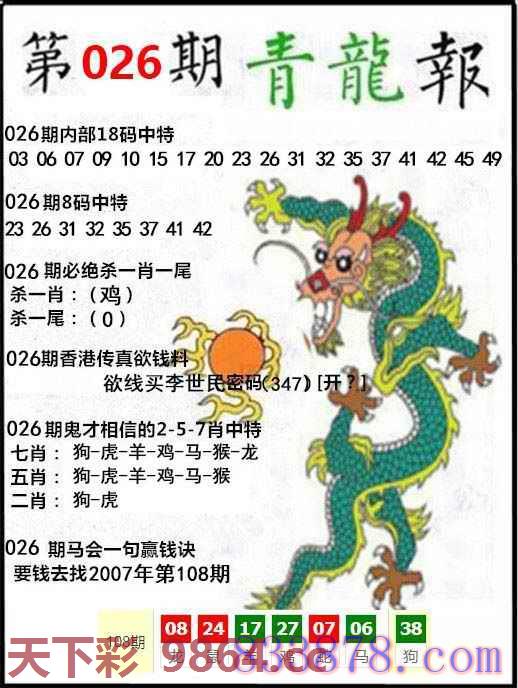 第026期青龍報
026期内部18码中特
03 06 07 09 10 15 17 20 23 26 31 32 35 37 41 42 45 49
026期8码中特
23 26 31 32 35 37 41 42
026期必绝杀一肖一尾
杀一肖：(鸡)
杀一尾：(0)
026期香港传真欲钱料
欲线买李世民密码(347)[开?]
026期鬼才相信的2-5-7肖中特
七肖：狗-虎-羊-鸡-马-猴-龙
五肖：狗-虎-羊-鸡-马-猴
二肖：狗-虎
026 期马会一句赢钱诀
要钱去找2007年第108期
108期 08 24 17 27 07 06 38
龙 鼠 羊 鸡 蛇 马 狗
天下彩